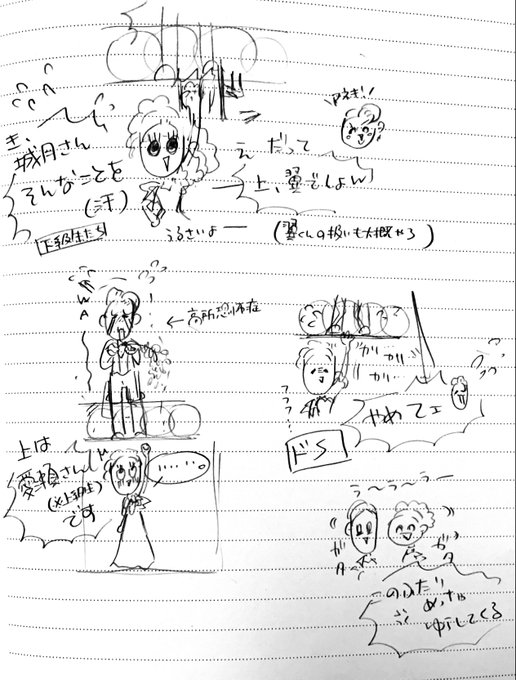 き、
城月さん
そんなことを
(汗)
下級生たち
アネキ!!
え だって
上、翼でしょw
うるさいよー
(翼くんの扱いも大概やろ)
WA
←高所恐怖症
上は
愛頼さん
(※上級生)
です
……。
ガリ
ガリ
ガリ…
フフフ…
やめてェ
ドS
う〜ら〜らー
ガタ
ガタ
のふたり
めっちゃ
ゆらしてくる